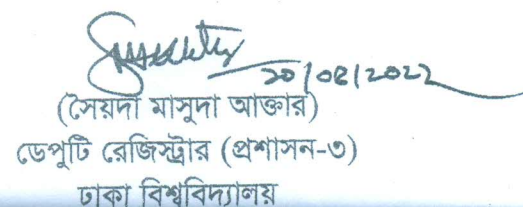 ২০/০৪/২০২২
(সৈয়দা মাসুদা আক্তার)
ডেপুটি রেজিস্ট্রার (প্রশাসন-৩)
ঢাকা বিশ্ববিদ্যালয়